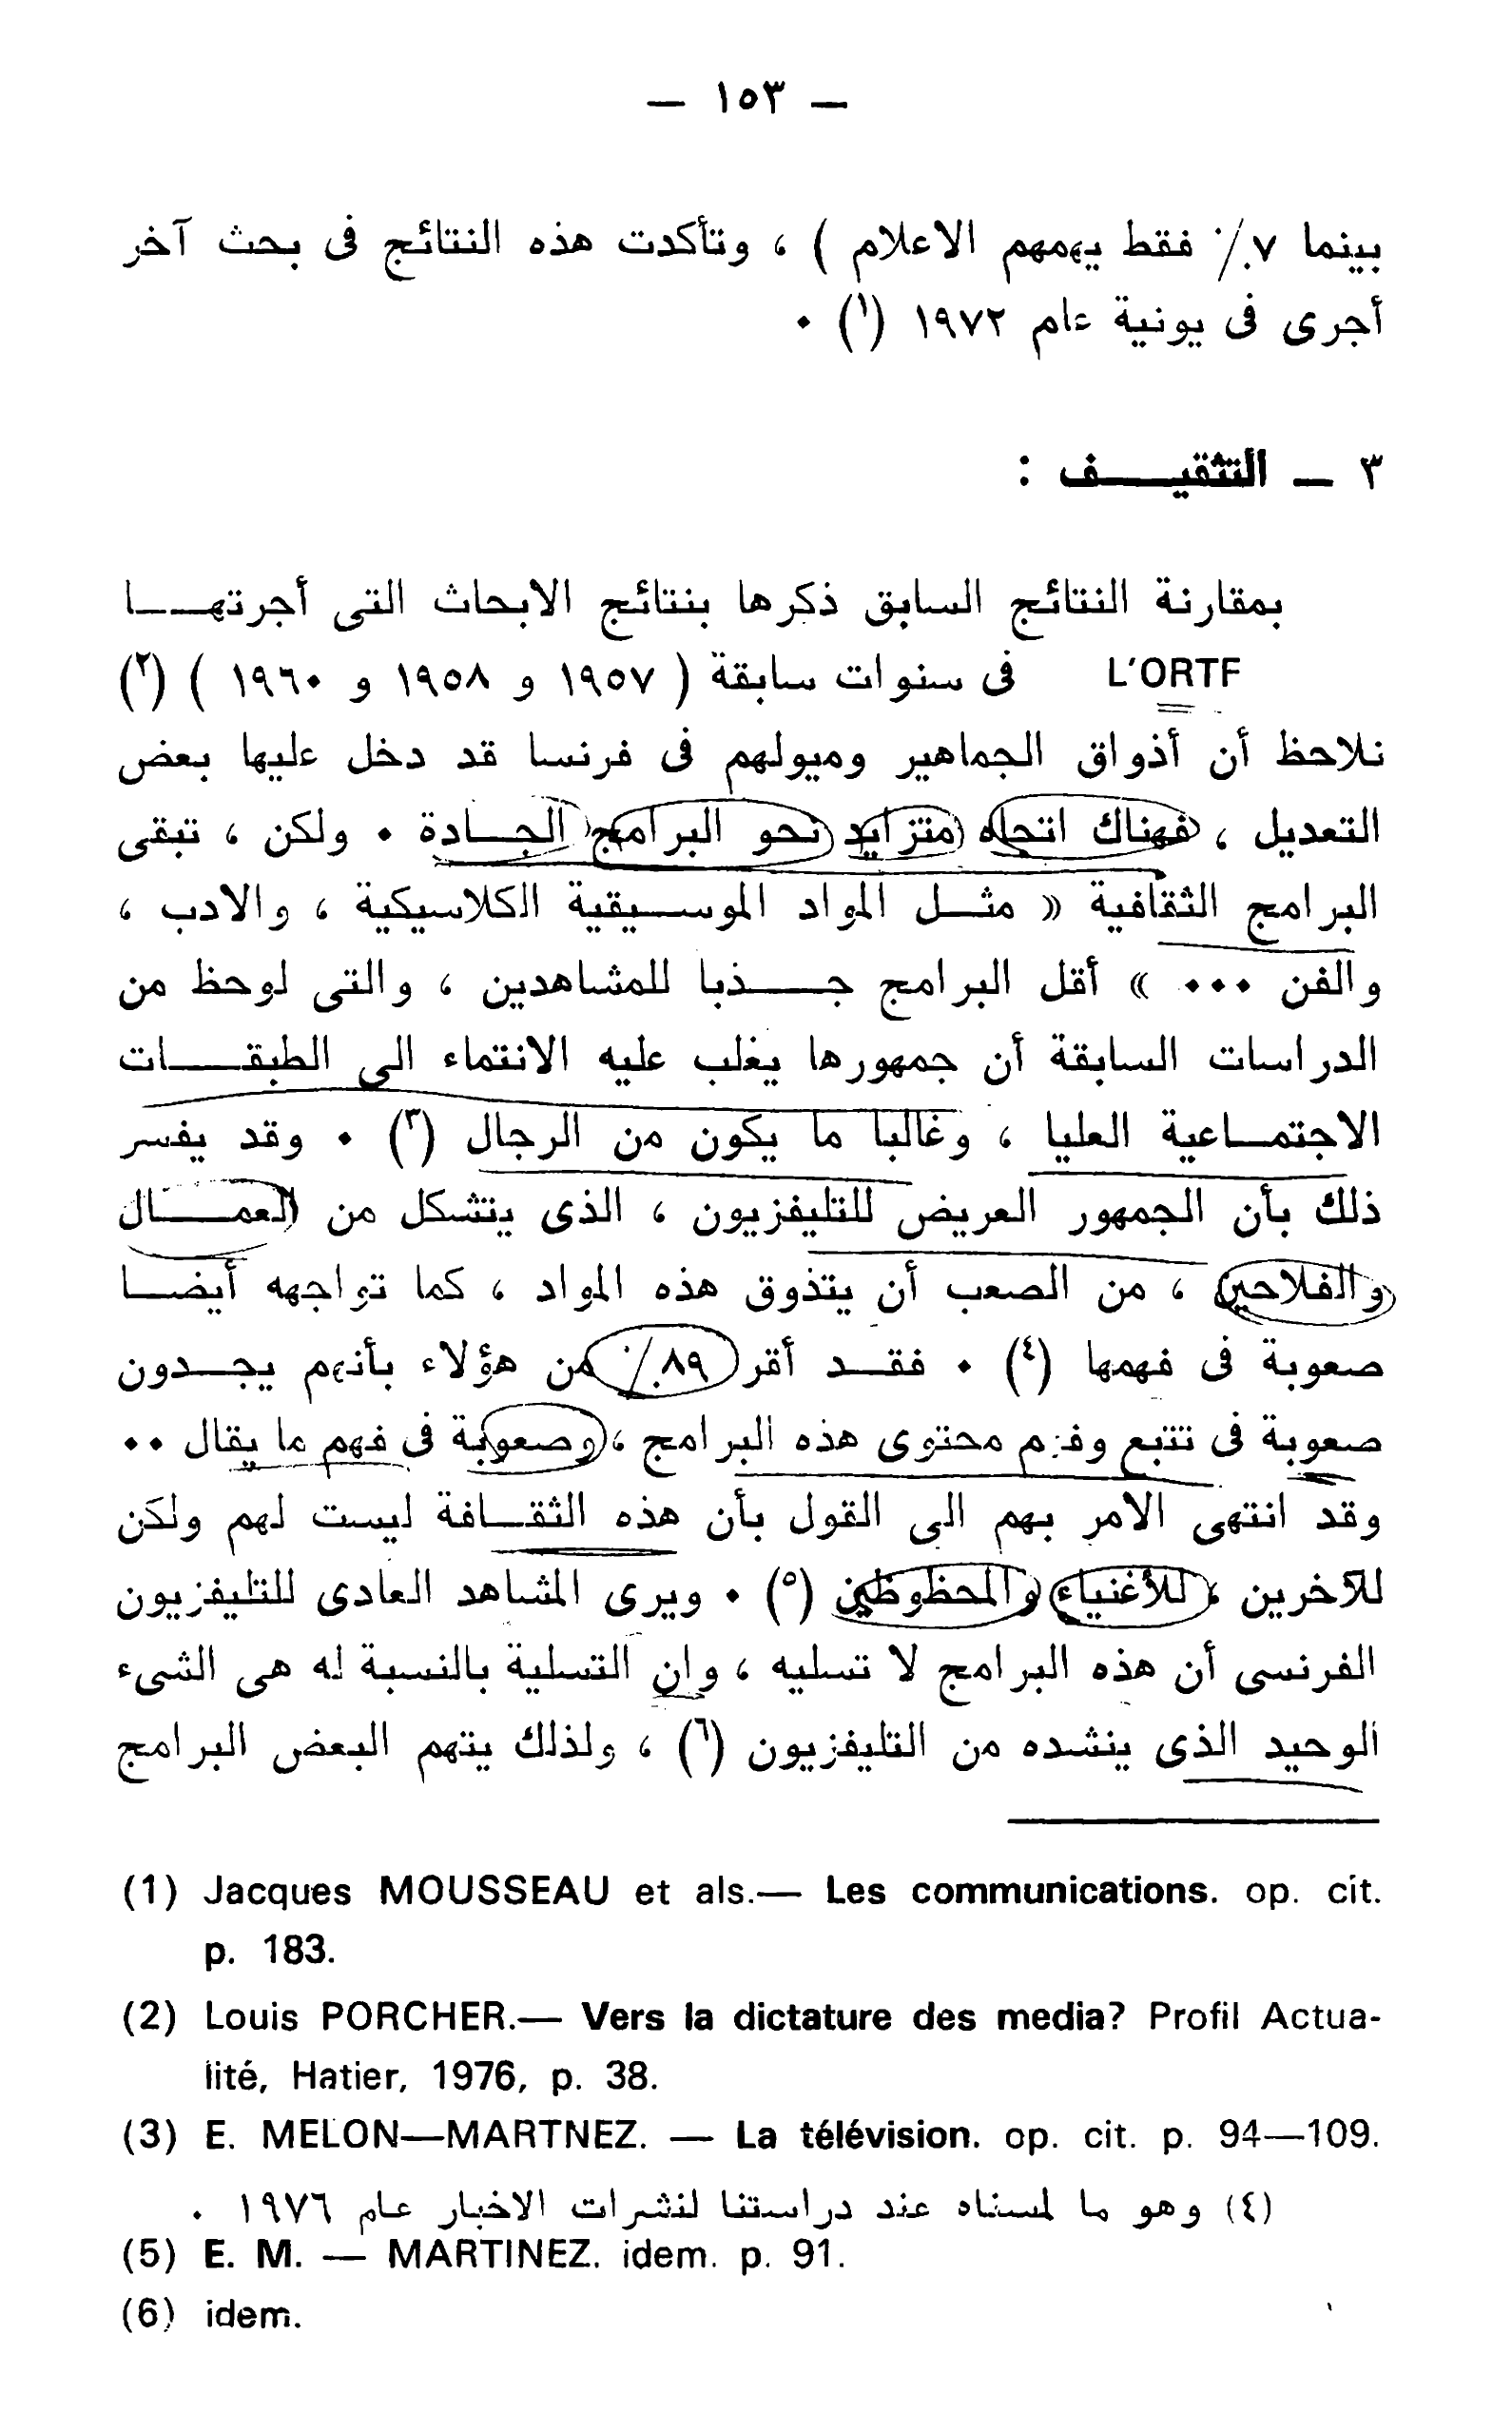 — ١٥٣ —
بينما ٧٪ فقط يهمهم الاعلام ) ، وتأكدت هذه النتائج فى بحث آخر
أجرى فى يونية عام ١٩٧٢ (١) ٠
٣ — التثقيـــف :
بمقارنة النتائج السابق ذكرها بنتائج الابحاث التى أجرتهــا
L'ORTF فى سنوات سابقة ( ١٩٥٧ و ١٩٥٨ و ١٩٦٠ ) (٢)
نلاحظ أن أذواق الجماهير وميولهم فى فرنسا قد دخل عليها بعض
التعديل ، فهناك اتجاه متزايد نحو البرامج الجــادة ٠ ولكن ، تبقى
البرامج الثقافية « مثــل المواد الموســيقية الكلاسيكية ، والادب ،
والفن ٠٠٠ » أقل البرامج جـــذبا للمشاهدين ، والتى لوحظ من
الدراسات السابقة أن جمهورها يغلب عليه الانتماء الى الطبقــات
الاجتمــاعية العليا ، وغالبا ما يكون من الرجال (٣) ٠ وقد يفسر
ذلك بأن الجمهور العريض للتليفزيون ، الذى يتشكل من العمــال
والفلاحين ، من الصعب أن يتذوق هذه المواد ، كما تواجهه أيضــا
صعوبة فى فهمها (٤) ٠ فقــد أقر ٨٩٪ من هؤلاء بأنهم يجــدون
صعوبة فى تتبع وفهم محتوى هذه البرامج ، وصعوبة فى فهم ما يقال ٠٠
وقد انتهى الامر بهم الى القول بأن هذه الثقــافة ليست لهم ولكن
للآخرين ، للأغنياء والمحظوظين (٥) ٠ ويرى المشاهد العادى للتليفزيون
الفرنسى أن هذه البرامج لا تسليه ، وان التسلية بالنسبة له هى الشىء
الوحيد الذى ينشده من التليفزيون (٦) ، ولذلك يتهم البعض البرامج
(1) Jacques MOUSSEAU et als.— Les communications. op. cit.
p. 183.
(2) Louis PORCHER.— Vers la dictature des media? Profil Actua-
lité, Hatier, 1976, p. 38.
(3) E. MELON—MARTNEZ. — La télévision. op. cit. p. 94—109.
(٤) وهو ما لمسناه عند دراستنا لنشرات الاخبار عام ١٩٧٦ .
(5) E. M. — MARTINEZ. idem. p. 91.
(6) idem.